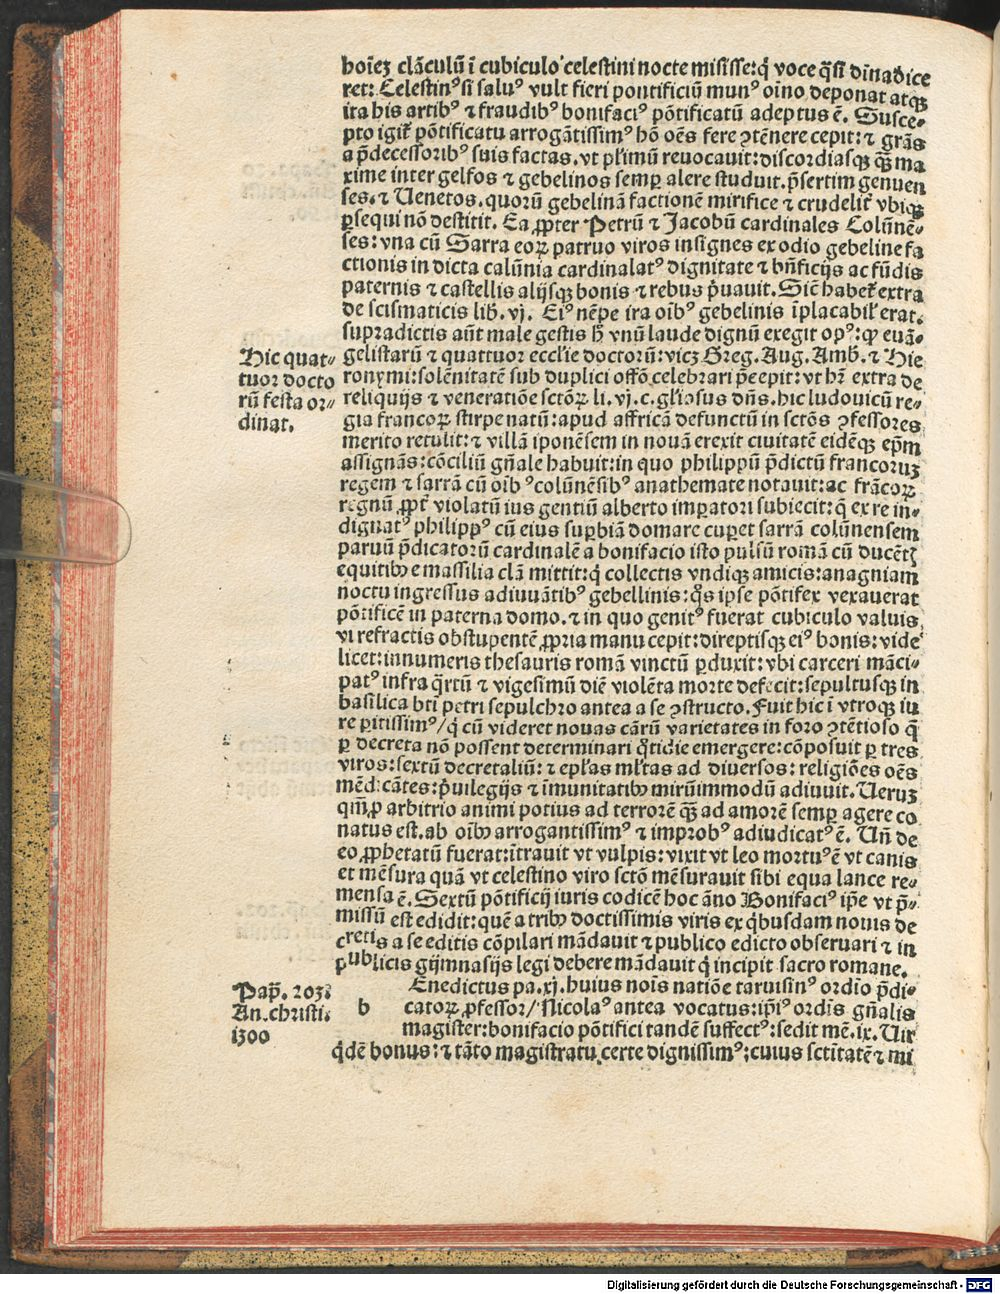 hoīeꝫ clāculū ī cubiculo celestini nocte misisse: q̇ voce q̄si diuadice
ret: Celestinꝰ si saluꝰ vult fieri pontificiū munꝰ oīno deponat atqꝫ
ita his artibꝰ ⁊ fraudibꝰ bonifaciꝰ pōtificatū adeptus ē. Susce⸗
pto igit᷑ pōtificatu arrogātissimꝰ hō oēs fere ꝯtēnere cepit: ⁊ grās
a p̄decessoribꝰ suis factas. vt pl̄imū reuocauit: discordiasqꝫ qꝫ̄ ma
xime inter gelfos ⁊ gebelinos semꝑ alere studuit. p̄sertim genuen
ses. ⁊ Uenetos. quorū gebelinā factionē mirifice ⁊ crudelit᷑ vbiqꝫ
ꝑsequi nō destitit. Ea ꝓpter Petrū ⁊ Jacobū cardinales Colūnē⸗
ses: vna cū Sarra eoꝝ patruo viros insignes ex odio gebeline fa
ctionis in dicta calūnia cardinalatꝰ dignitate ⁊ bn̄ficijs ac fūdis
paternis ⁊ castellis alijsqꝫ bonis ⁊ rebus p̓uauit. Sic̄ habet᷑ extra
de scismaticis lib̄. vj. Eiꝰ nēpe ira oībꝰ gebelinis īplacabil̓ erat.
supradictis aūt male gestis h̓ vnū laude dignū exegit opꝰ: ꝙ euā⸗
gelistarū ⁊ quattuor eccl̓ie doctorū: vicꝫ Greg. Aug. Amb̄. ⁊ Hie
ronymi: solēnitatē sub duplici offō celebrari p̄cepit: vt hr̄ extra de
reliquijs ⁊ veneratiōe sctōꝝ li. vj. c. gl̓iosus dn̄s. hic ludouicū re⸗
gia francoꝝ stirpe natū: apud affricā defunctū in sctōs ꝯfessores
merito retulit: ⁊ villā iponēsem in nouā erexit ciuitatē eidēqꝫ ep̄m
assignās: cōciliū gn̄ale habuit: in quo philippū p̄dictū francoruꝫ
regem ⁊ sarrā cū oīb ꝰcolūnēsibꝰ anathemate notauit: ac frācoꝝ
regnū ꝓpt᷑ violatū ius gentiū alberto imꝑatori subiecit: q̇ ex re in⸗
dignatꝰ philippꝰ cū eius suꝑbiā domare cuꝑet sarrā colūnensem
paruū p̄dicatorū cardinalē a bonifacio isto pulsū romā cū ducētꝭ
equitibꝫ e massilia clā mittit: q̇ collectis vndiqꝫ amicis: anagniam
noctu ingressus adiuuātibꝰ gebellinis: q̊s ip̄e pōtifex vexauerat
pōtificē in paterna domo. ⁊ in quo genitꝰ fuerat cubiculo valuis
vi refractis obstupentē ꝓpria manu cepit: direptisqꝫ eiꝰ bonis: vide
licet: innumeris thesauris romā vinctū ꝑduxit: vbi carceri māci⸗
patꝰ infra q̄rtū ⁊ vigesimū diē violēta morte defecit: sepultusqꝫ in
basilica bt̄i petri sepulchro antea a se ꝯstructo. Fuit hic ī vtroqꝫ iu
re ꝑitissimꝰ/ q̇ cū videret nouas cārū varietates in foro ꝯtētioso q̄
ꝑ decreta nō possent determinari q̊tidie emergere: cōposuit ꝑ tres
viros: sextū decretaliū: ⁊ epl̓as ml̓tas ad diuersos: religiōes oēs
mēdicātes: p̓uilegijs ⁊ īmunitatibꝫ mirūimmodū adiuuit. Ueruꝫ
qm̄ ꝓ arbitrio animi potius ad terrorē qꝫ̄ ad amorē semꝑ agere co
natus est. ab oībꝫ arrogantissimꝰ ⁊ improbꝰ adiudicatꝰ ē. Un̄ de
eo ꝓphetatū fuerat: ītrauit vt vulpis: vixit vt leo mortuꝰ ē vt canis
et mēsura quā vt celestino viro sctō mēsurauit sibi equa lance re⸗
mensa ē. Sextū pōtificij iuris codicē hoc āno Bonifaciꝰ ip̄e vt p̄⸗
missū est edidit: quē a tribꝫ doctissimis viris ex q̇busdam nouis de
cretis a se editis cōpilari mādauit ⁊ publico edicto obseruari ⁊ in
publicis gijmnasijs legi debere mādauit q̇ incipit sacro romane.
Hic quat⸗
tuor docto
rū festa or⸗
dinat.
Pap̄. 203.
An. christi.
1300
b
Enedictus pa. xj. huius nois natiōe taruisinꝰ ordīo p̄di⸗
catoꝝ ꝓfessor/ Nicolaꝰ antea vocatus: ip̄iꝰ ordīs gn̄alis
magister: bonifacio pōtifici tandē suffectꝰ: sedit mē. ix. Uir
q̇dē bonus: ⁊ tāto magistratu certe dignissimꝰ: cuius sctītatē ⁊ mi
Digitalisierung gefördert durch die Deutsche Forschungsgemeinschaft - DFG